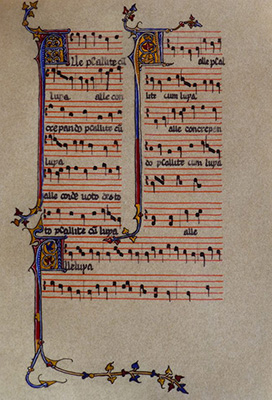 Alle psallite cū
luya alle con
crepando psallite cū
luya
alle corde voto deo to
to psallite cū luya
Alleluya
Alle psal
lite cum luya
alle concrepan
do psallite cum luya
alle